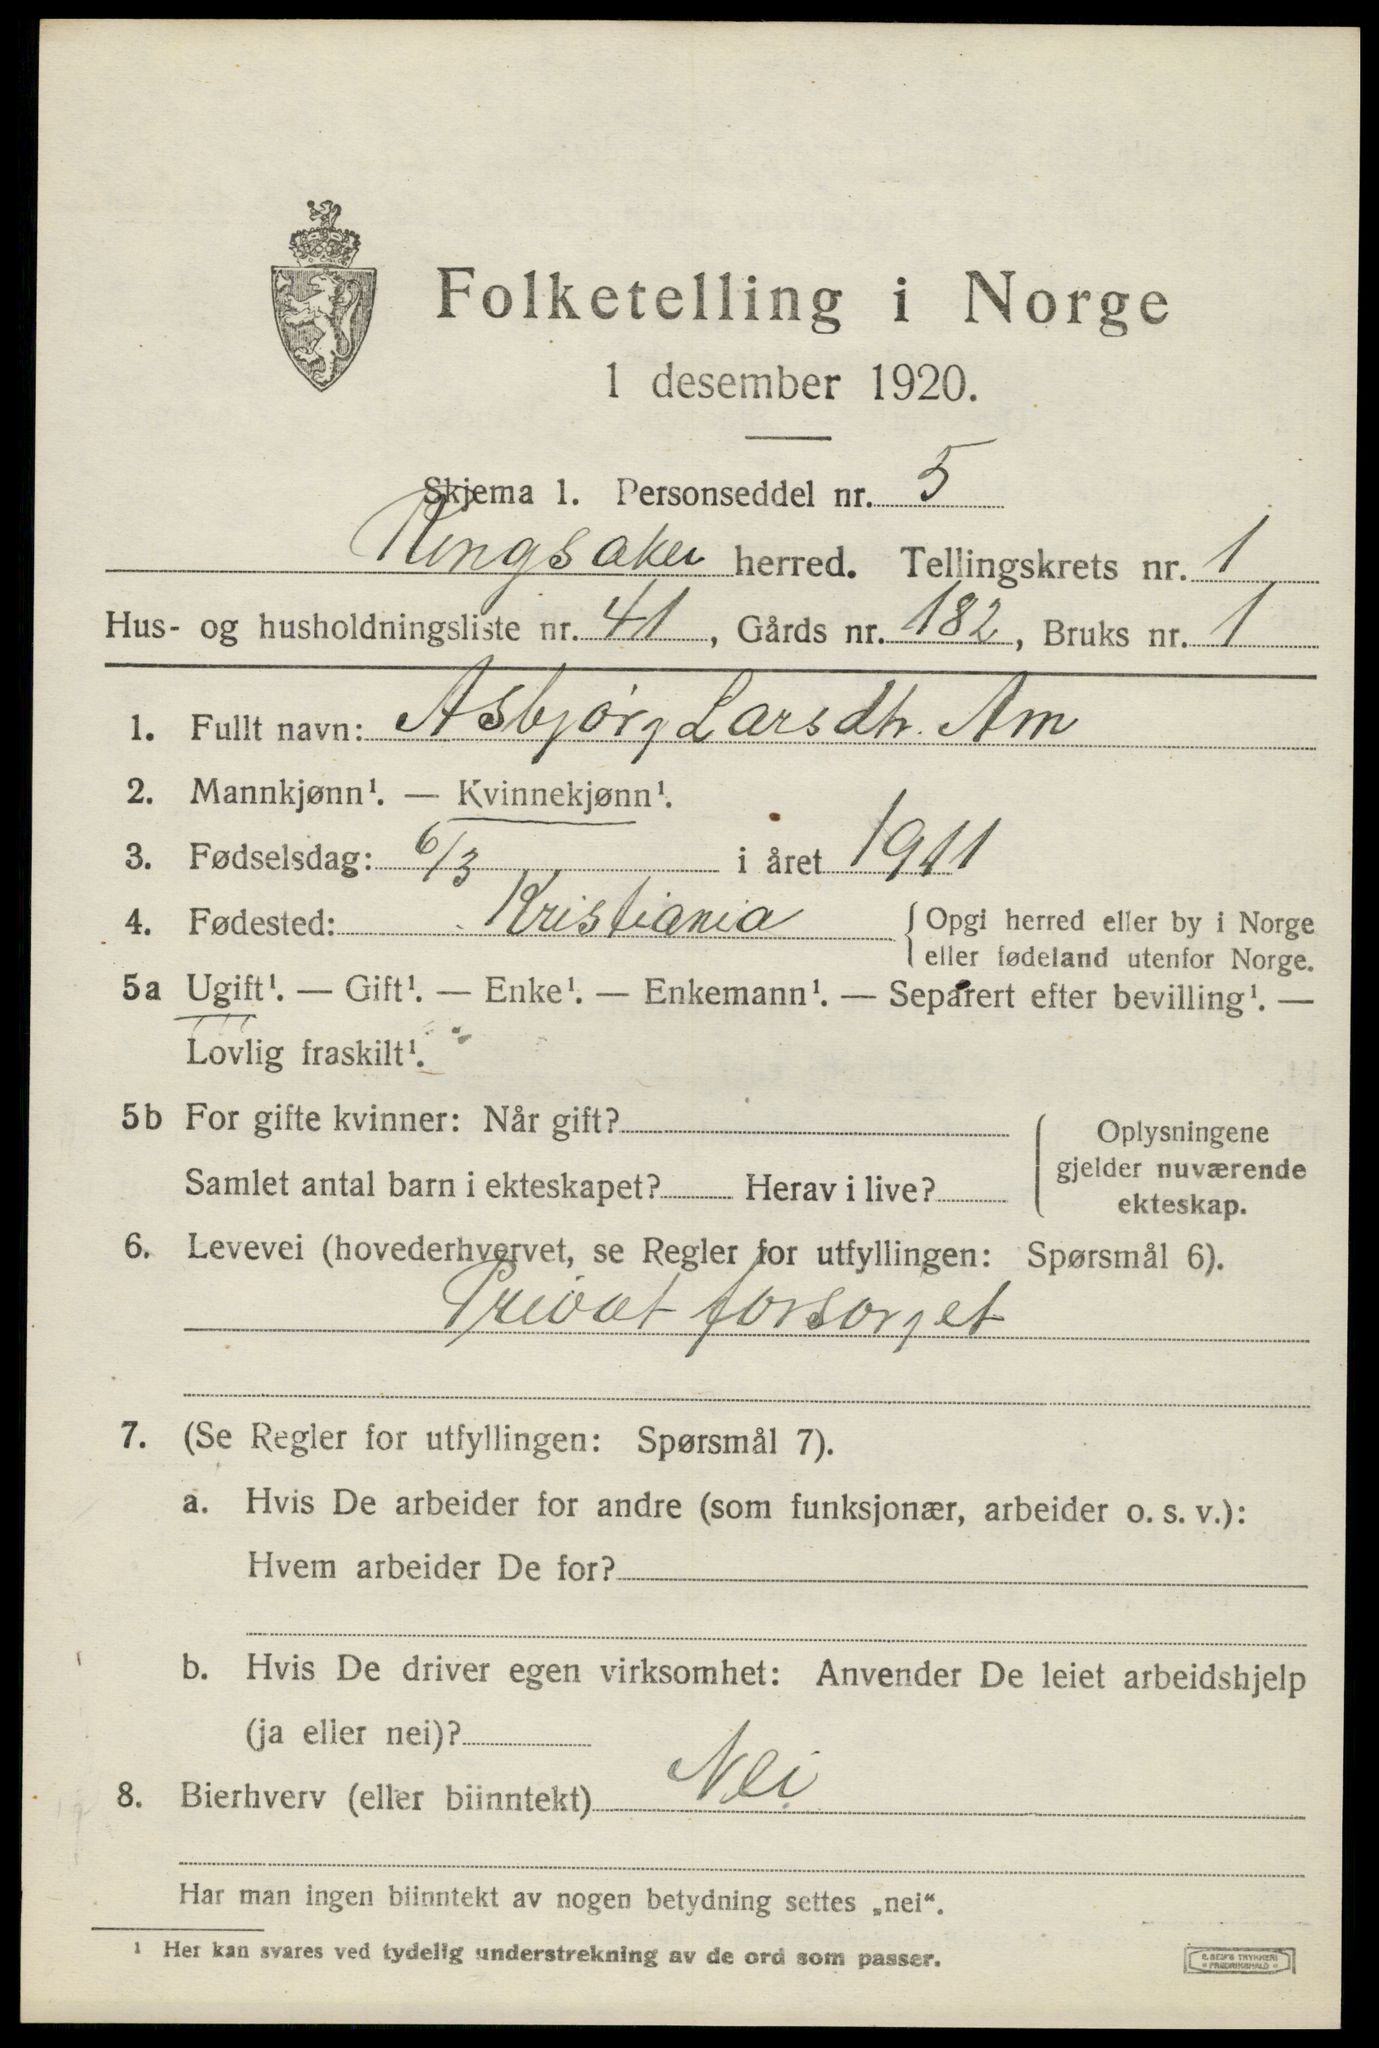 Folketelling i Norge
1 desember 1920.
Skjema 1. Personseddel nr. 5
Ringsaker herred. Tellingskrets nr. 1
Hus- og husholdningsliste nr. 41, Gårds nr. 182, Bruks nr. 1
1. Fullt navn: Asbjørg Larsdtr. Am
2. Mannkjønn¹. — Kvinnekjønn¹.
3. Fødselsdag: 6/3 i året 1911
4. Fødested: Kristiania { Opgi herred eller by i Norge
eller fødeland utenfor Norge.
5a Ugift¹. — Gift¹. — Enke¹. — Enkemann¹. — Separert efter bevilling¹. —
Lovlig fraskilt¹.
5b For gifte kvinner: Når gift?
Samlet antal barn i ekteskapet? Herav i live?
Oplysningene
gjelder nuværende
ekteskap.
6. Levevei (hovederhvervet, se Regler for utfyllingen: Spørsmål 6).
Privat forsørget
7. (Se Regler for utfyllingen: Spørsmål 7).
a. Hvis De arbeider for andre (som funksjonær, arbeider o. s. v.):
Hvem arbeider De for?
b. Hvis De driver egen virksomhet: Anvender De leiet arbeidshjelp
(ja eller nei)?
8. Bierhverv (eller biinntekt) Nei
Har man ingen biinntekt av nogen betydning settes „nei“.
¹ Her kan svares ved tydelig understrekning av de ord som passer.